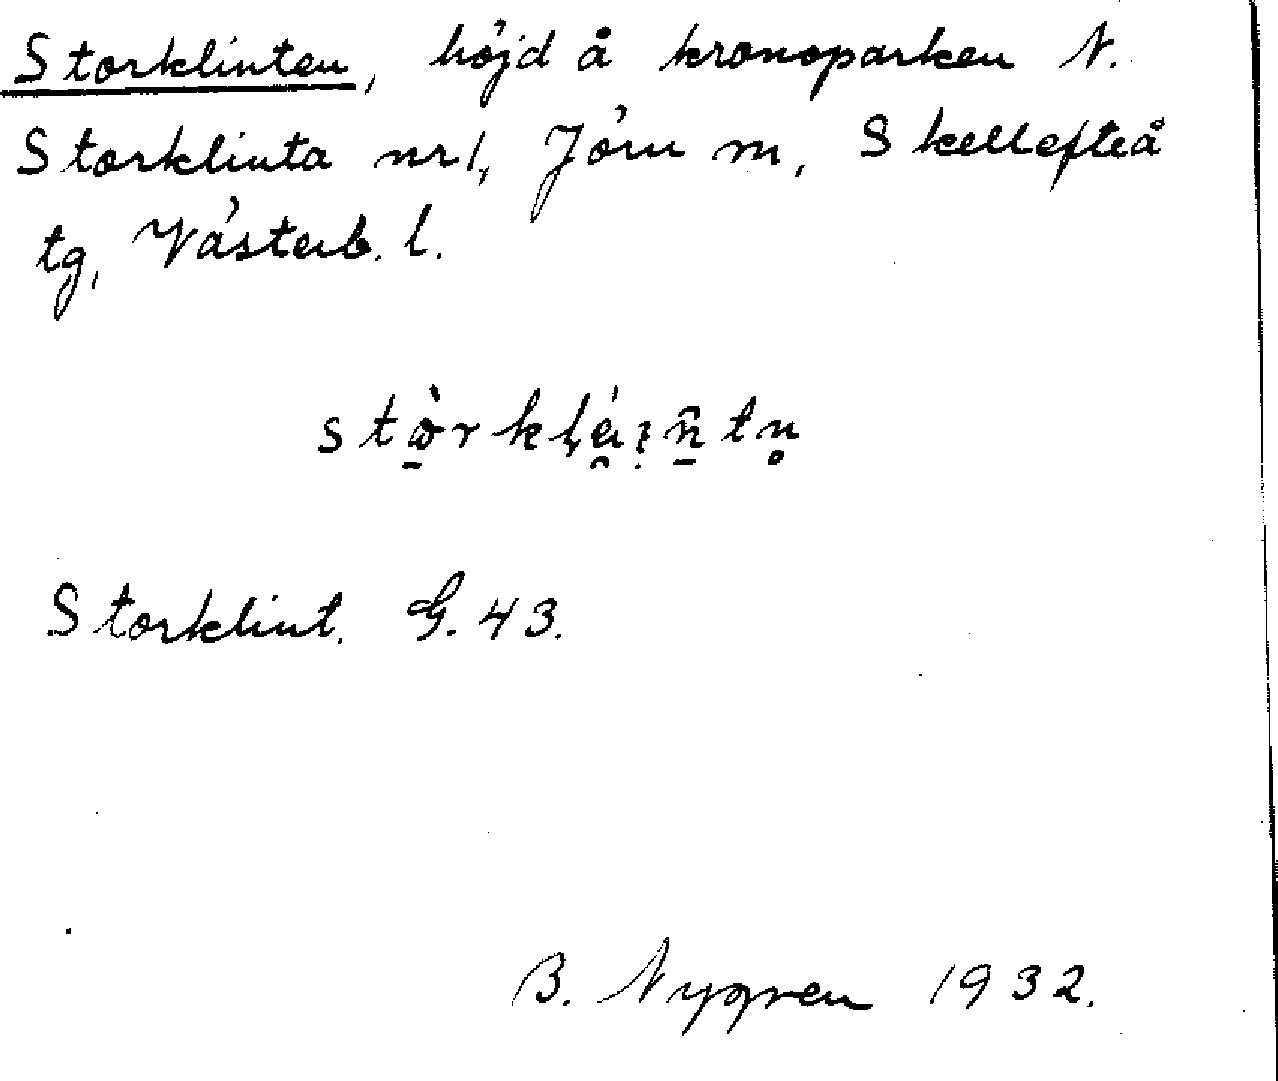 Storklinten, höjd å kronoparken N.
Storklinta nr 1, Jörn m, Skellefteå
tg, Västerb. l.
Storklint. G. 43.
B. Nygren 1932.